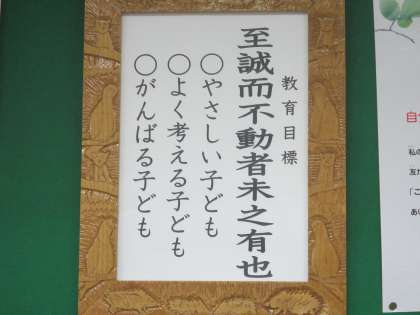 教育目標
至誠而不動者未之有也
○やさしい子ども
○よく考える子ども
○がんばる子ども
自
私の
友だ
「こ
あい